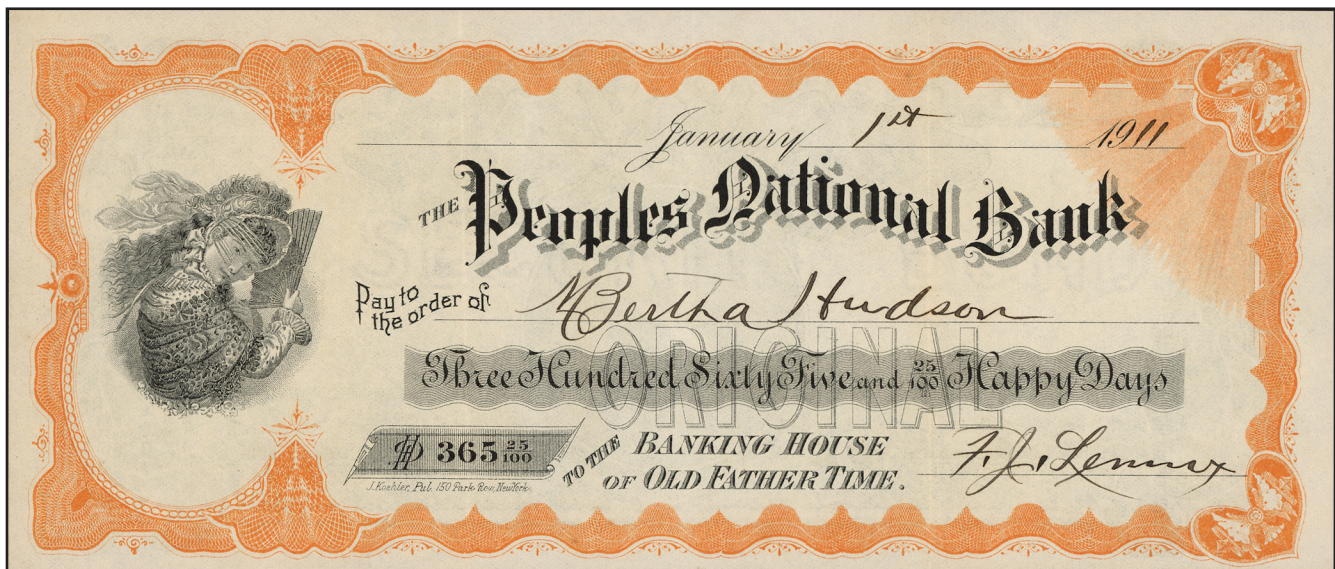 January 1st 1911
THE Peoples National Bank
Pay to the order of Bertha Hudson
ORIGINAL
Three Hundred Sixty Five and 25/100 Happy Days
HD 365 25/100
TO THE BANKING HOUSE
OF OLD FATHER TIME.
F. J. Lennox
J. Koehler, Pub. 150 Park Row, New York.